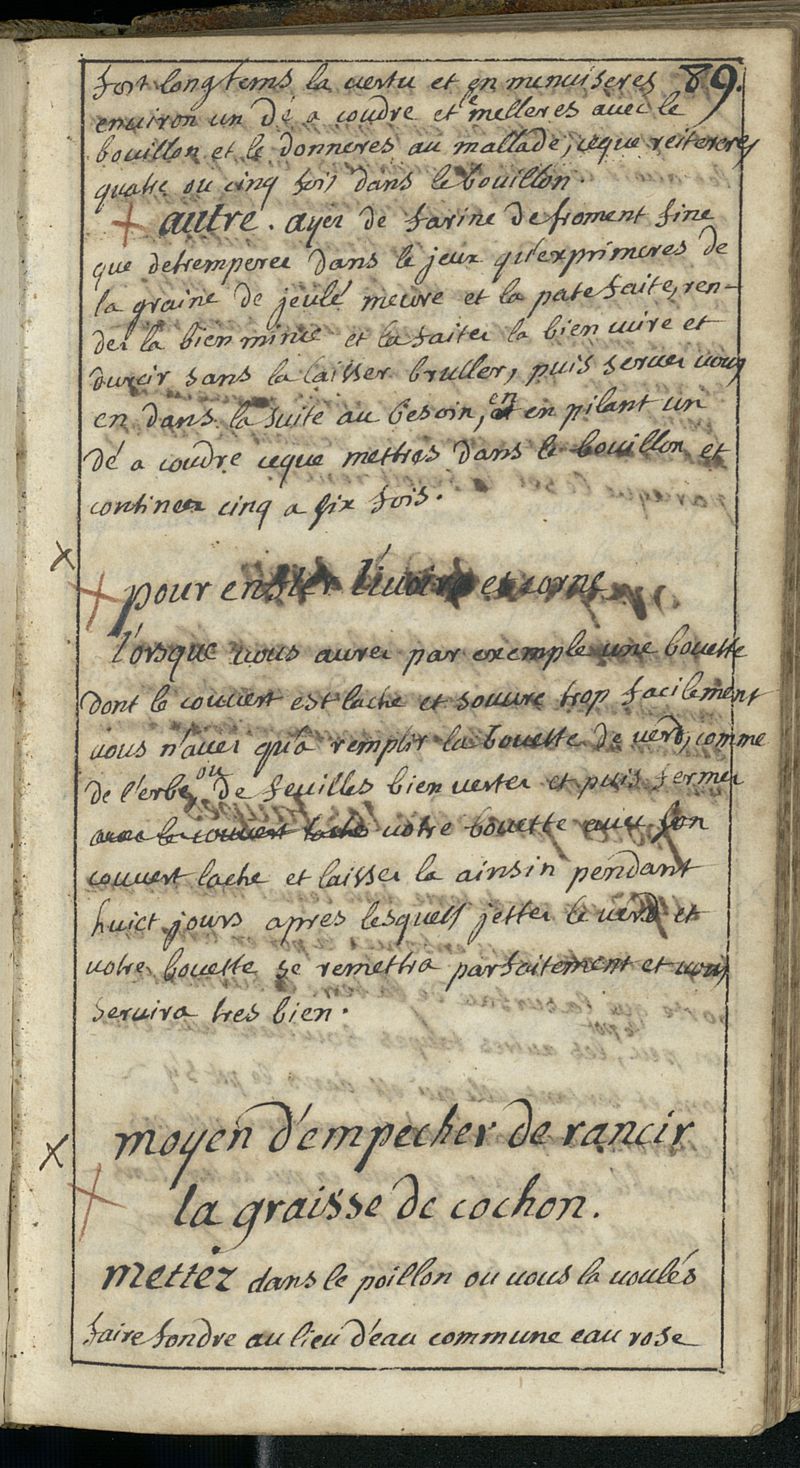 89.
fort longtems la vertu et en minuiseres
environ un dé a coudre et le melleres avec le
bouillon et le donneres au mallade, ceque reitereres
quatre ou cinq fois dans le bouillon.
+ autre. ayez de farine de froment fine
que detremperez dans le jeux qu'exprimeres de
la graine de jeulé meure et la pate faite, ren-
dez la bien mince et la faitez la bien cuire et
durcir sans la laisser bruller, puis servez vous
en dans la suite au besoin, en en pilant un
dé a coudre ceque mettres dans le bouillon et
continuez cinq a six fois.
x
+ pour enfler l'ivoire et corne
l'orsque vous aurez par exemple une bouette
dont le couvert est lache et souvre trop facilement
vous n'avez qu'a remplir la bouette de verd, comme
de l'erbe, ou de feuilles bien vertez et puis fermez
avec le couvert lache votre bouette avec son
couvert lache et laissez la ainsin pendant
huict jours apres lesquels jettez le verd et
votre bouette se remettra parfaitement et vous
servira tres bien.
x
+ moyen d'empecher de rancir
la graisse de cochon.
mettez dans le poillon ou vous la voulés
faire fondre au lieu d'eau commune eau rose